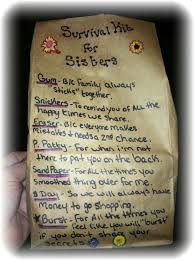 Survival Kit
for
Sisters
Gum - B/c Family always
"Sticks" together
Snickers - To remind you of ALL the
happy times we share.
Eraser - B/c everyone makes
mistakes & needs a 2nd chance.
P. Patty - For when I'm not
there to pat you on the back.
Sand Paper - For All the times you
Smoothed thing over for me.
$ Day - So we will always have
Money to go Shopping.
*Burst - For All the times you
Feel like you will "burst"
if you don't share your
Secrets